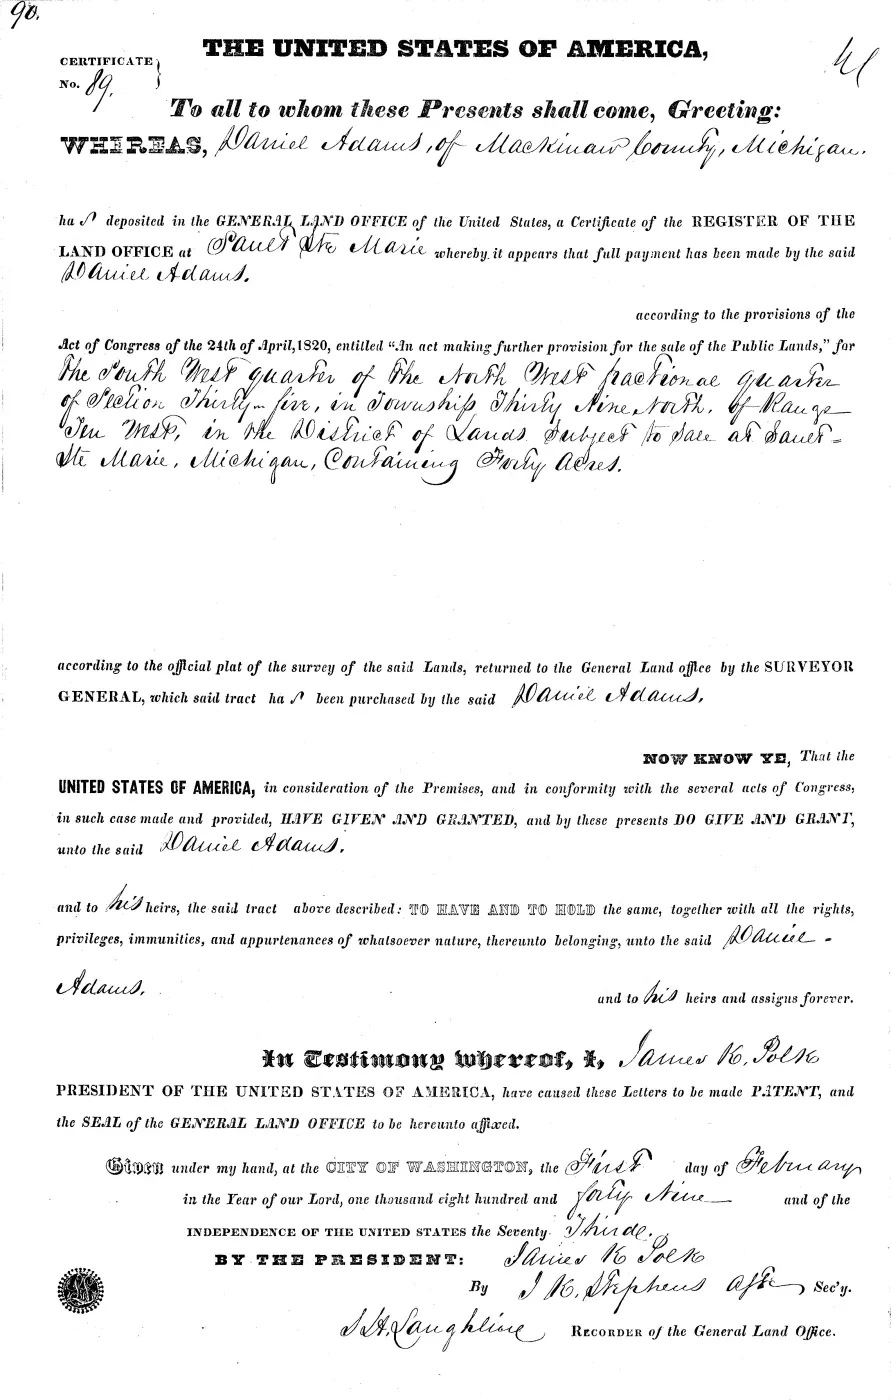 90.
THE UNITED STATES OF AMERICA,
CERTIFICATE
No. 89.
To all to whom these Presents shall come, Greeting:
WHEREAS, Daniel Adams, of Mackinaw County, Michigan.
ha s deposited in the GENERAL LAND OFFICE of the United States, a Certificate of the REGISTER OF THE
LAND OFFICE at Sault Ste Marie whereby it appears that full payment has been made by the said
Daniel Adams.
according to the provisions of the
Act of Congress of the 24th of April, 1820, entitled "An act making further provision for the sale of the Public Lands," for
the South West quarter of the North West fractional quarter
of Section Thirty-five, in Township Thirty Nine North, of Range
Ten West, in the District of Lands Subject to Sale at Sault-
Ste Marie, Michigan, Containing Forty Acres.
according to the official plat of the survey of the said Lands, returned to the General Land office by the SURVEYOR
GENERAL, which said tract ha s been purchased by the said Daniel Adams,
NOW KNOW YE, That the
UNITED STATES OF AMERICA, in consideration of the Premises, and in conformity with the several acts of Congress,
in such case made and provided, HAVE GIVEN AND GRANTED, and by these presents DO GIVE AND GRANT,
unto the said Daniel Adams,
and to his heirs, the said tract above described: TO HAVE AND TO HOLD the same, together with all the rights,
privileges, immunities, and appurtenances of whatsoever nature, thereunto belonging, unto the said Daniel -
Adams,
and to his heirs and assigns forever.
In Testimony whereof, I, James K. Polk
PRESIDENT OF THE UNITED STATES OF AMERICA, have caused these Letters to be made PATENT, and
the SEAL of the GENERAL LAND OFFICE to be hereunto affixed.
Given under my hand, at the CITY OF WASHINGTON, the First day of February
in the Year of our Lord, one thousand eight hundred and forty Nine and of the
INDEPENDENCE OF THE UNITED STATES the Seventy Third.
BY THE PRESIDENT: James K Polk
By J K. Stephens Sec'y.
S H. Laughlin RECORDER of the General Land Office.